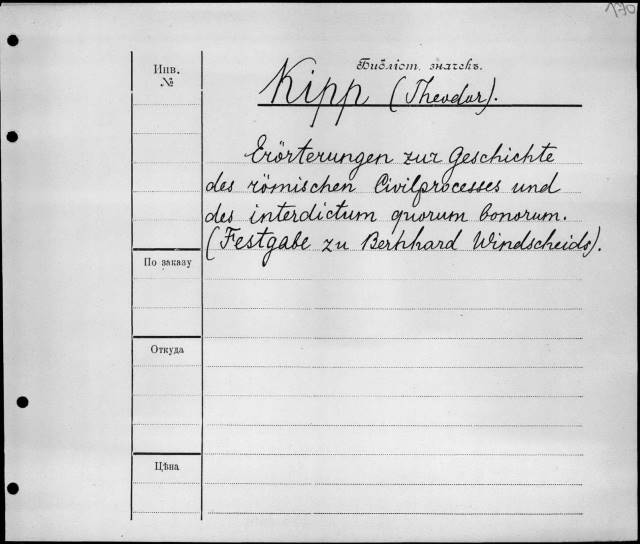 170
Инв.
№
Библіот. значекъ.
Kipp (Theodor).
Erörterungen zur Geschichte
des römischen Civilprocesses und
des interdictum quorum bonorum.
(Festgabe zu Bernhard Windscheids).
По заказу
Откуда
Цѣна